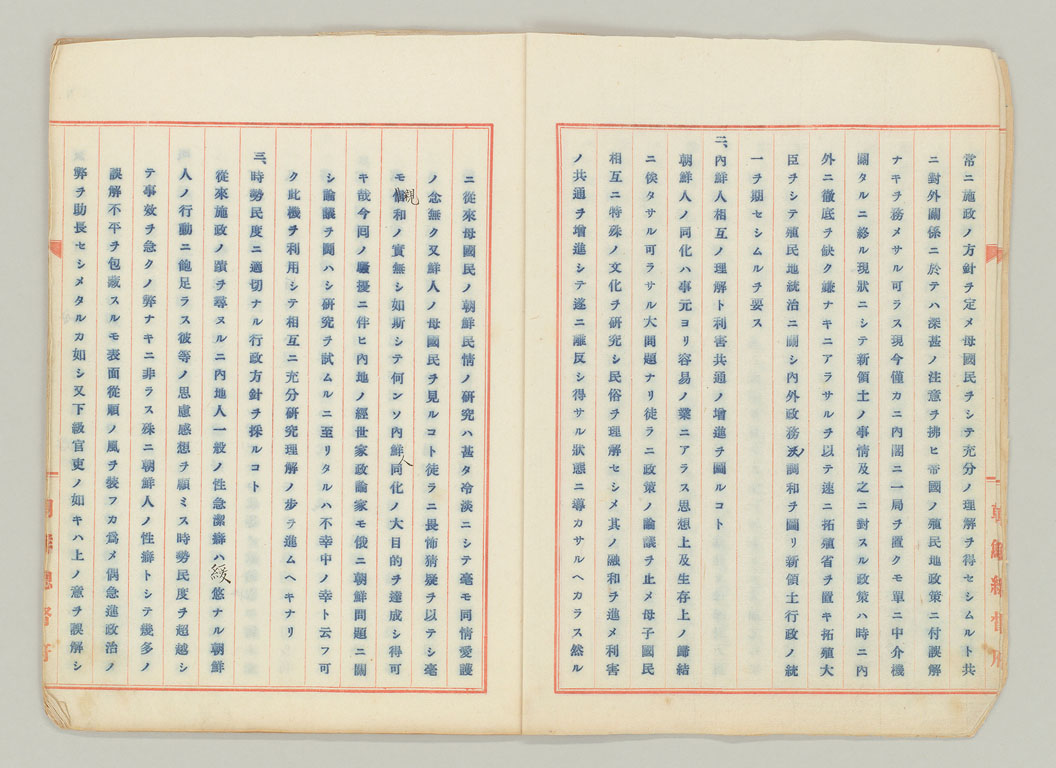 常ニ施政ノ方針ヲ定メ母國民ヲシテ充分ノ理解ヲ得セシムルト共
ニ對外關係ニ於テハ深甚ノ注意ヲ拂ヒ帝國ノ殖民地政策ニ付誤解
ナキヲ務メサル可ラス現今僅カニ內閣ニ一局ヲ置クモ單ニ中介機
關タルニ終ル現狀ニシテ新領土ノ事情及之ニ對スル政策ハ時ニ內
外ニ徹底ヲ缺ク嫌ナキニアラサルヲ以テ速ニ拓殖省ヲ置キ拓殖大
臣ヲシテ殖民地統治ニ關シ內外政務ノ調和ヲ圖リ新領土行政ノ統
一ヲ期セシムルヲ要ス
二、內鮮人相互ノ理解ト利害共通ノ增進ヲ圖ルコト
朝鮮人ノ同化ハ事元ヨリ容易ノ業ニアラス思想上及生存上ノ歸結
ニ俟タサル可ラサル大問題ナリ徒ラニ政策ノ論議ヲ止メ母子國民
相互ニ特殊ノ文化ヲ硏究シ民俗ヲ理解セシメ其ノ融和ヲ進メ利害
ノ共通ヲ增進シテ遂ニ離反シ得サル狀態ニ導カサルヘカラス然ル
朝鮮總督府
ニ從來母國民ノ朝鮮民情ノ硏究ハ甚タ冷淡ニシテ毫モ同情愛護
ノ念無ク又鮮人ノ母國民ヲ見ルコト徒ラニ畏怖猜疑ヲ以テシ毫
モ親和ノ實無シ如斯シテ何ンソ內鮮人同化ノ大目的ヲ達成シ得可
キ哉今回ノ騷擾ニ伴ヒ內地ノ經世家政論家モ俄ニ朝鮮問題ニ關
シ論議ヲ鬪ハシ硏究ヲ試ムルニ至リタルハ不幸中ノ幸ト云フ可
ク此機ヲ利用シテ相互ニ充分硏究理解ノ步ヲ進ムヘキナリ
三、時勢民度ニ適切ナル行政方針ヲ採ルコト
從來施政ノ蹟ヲ尋ヌルニ內地人一般ノ性急潔癖ハ緩悠ナル朝鮮
人ノ行動ニ飽足ラス彼等ノ思慮感想ヲ顧ミス時勢民度ヲ超越シ
テ事效ヲ急クノ弊ナキニ非ラス殊ニ朝鮮人ノ性癖トシテ幾多ノ
誤解不平ヲ包藏スルモ表面從順ノ風ヲ裝フカ爲メ偶急進政治ノ
弊ヲ助長セシメタルカ如シ又下級官吏ノ如キハ上ノ意ヲ誤解シ
朝鮮總督府